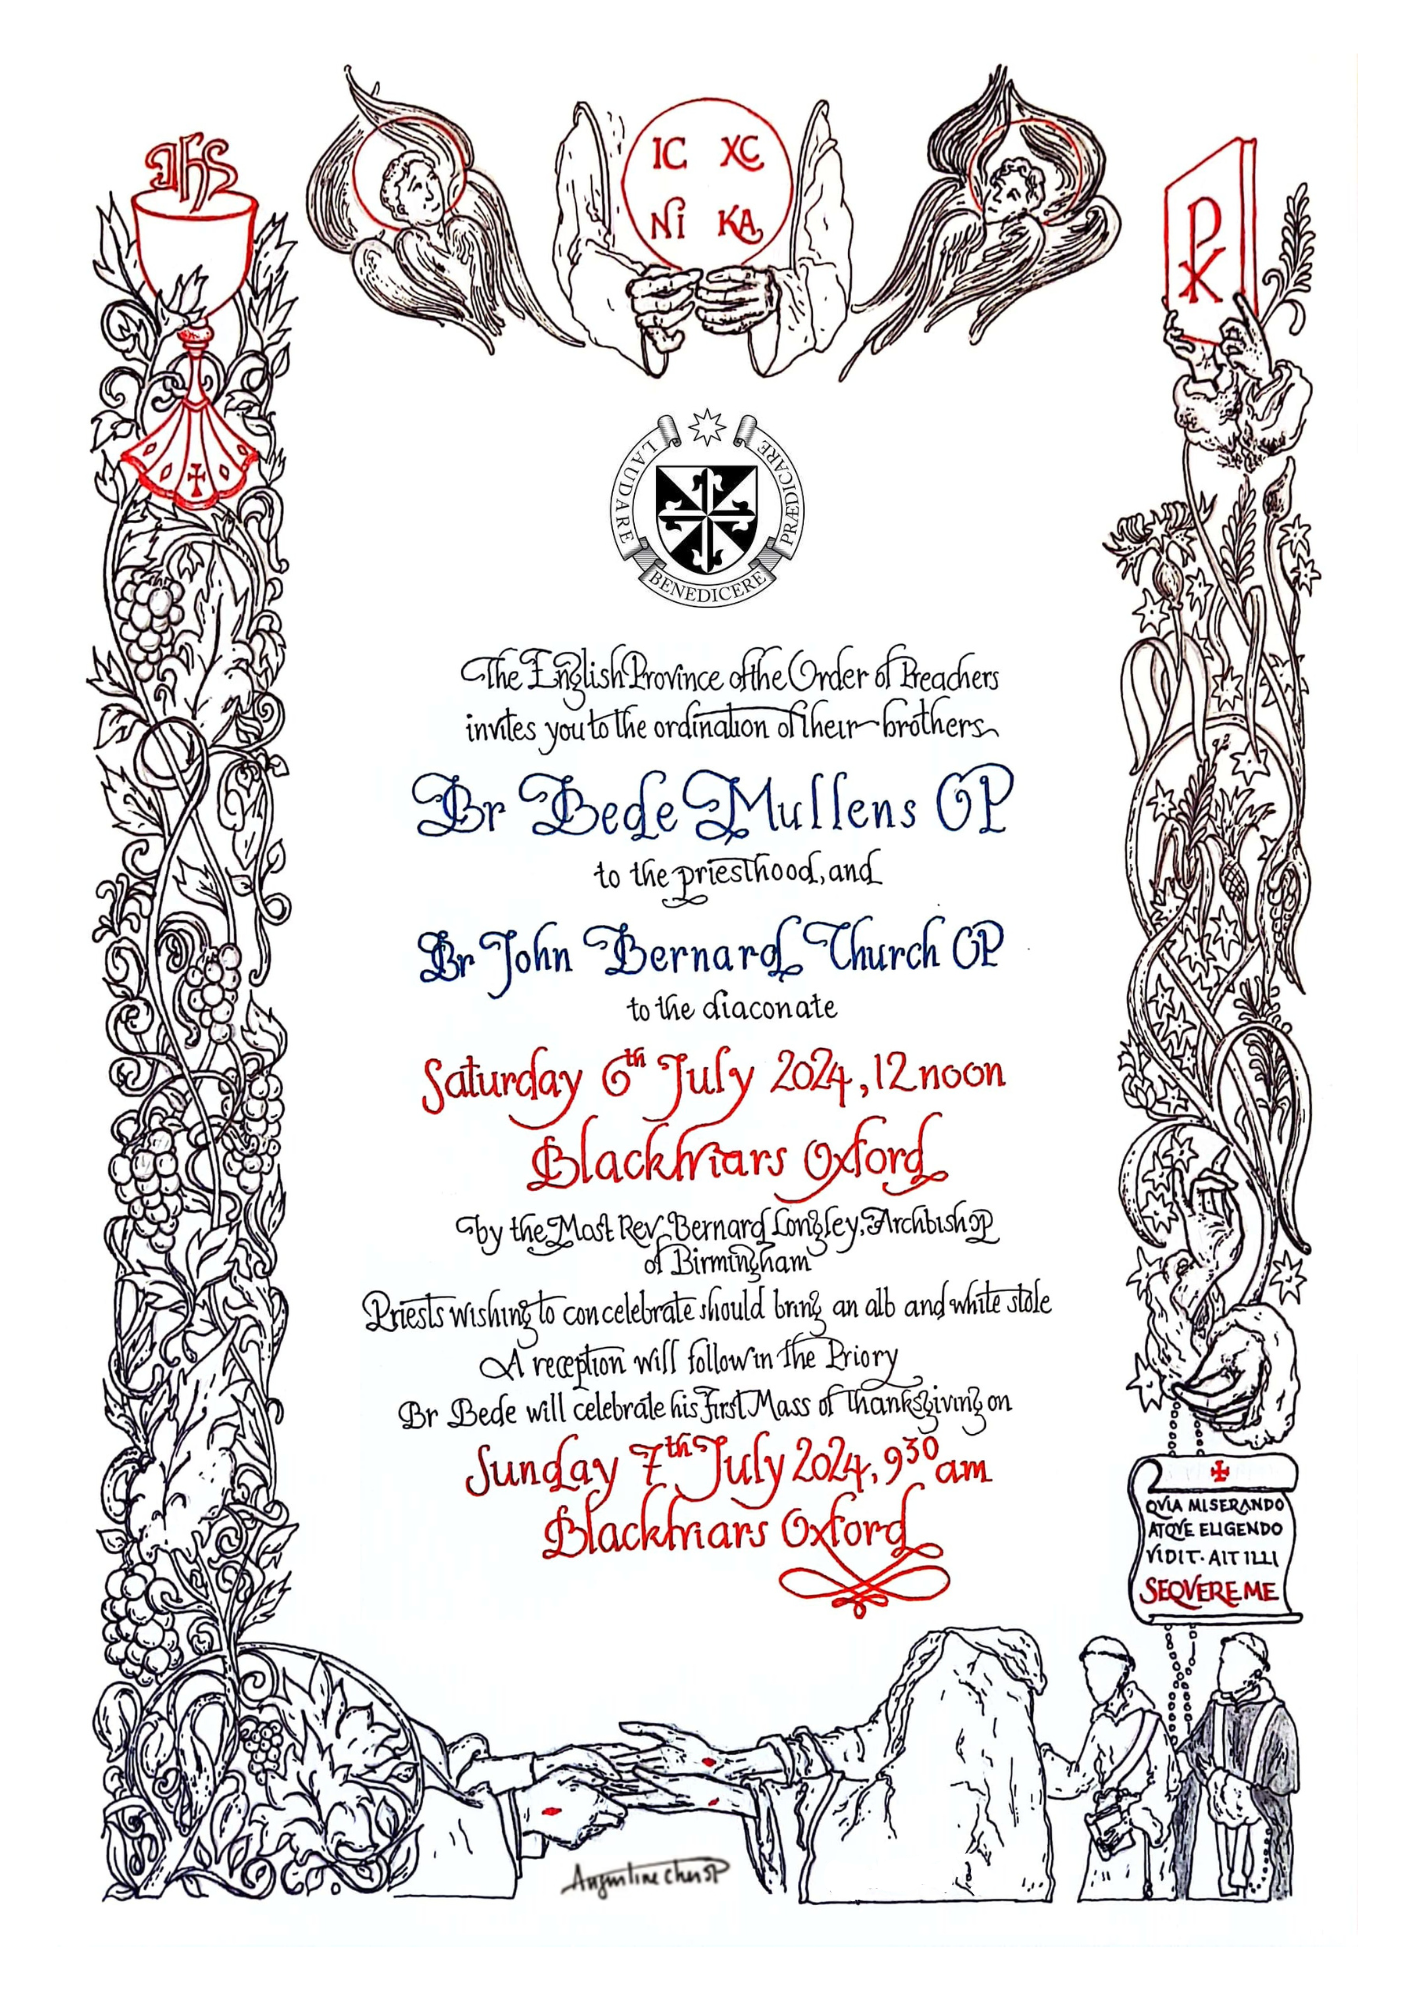 IHS
IC XC
NI KA
PX
LAUDARE
BENEDICERE
PRÆDICARE
The English Province of the Order of Preachers
invites you to the ordination of their brothers
Br Bede Mullens OP
to the priesthood, and
Br John Bernard Church OP
to the diaconate
Saturday 6th July 2024, 12 noon
Blackfriars Oxford
by the Most Rev. Bernard Longley, Archbishop
of Birmingham
Priests wishing to concelebrate should bring an alb and white stole
A reception will follow in the Priory
Br Bede will celebrate his First Mass of Thanksgiving on
Sunday 7th July 2024, 9 30 am
Blackfriars Oxford
QVIA MISERANDO
ATQVE ELIGENDO
VIDIT · AIT ILLI
SEQVERE ME
Augustine Chen OP